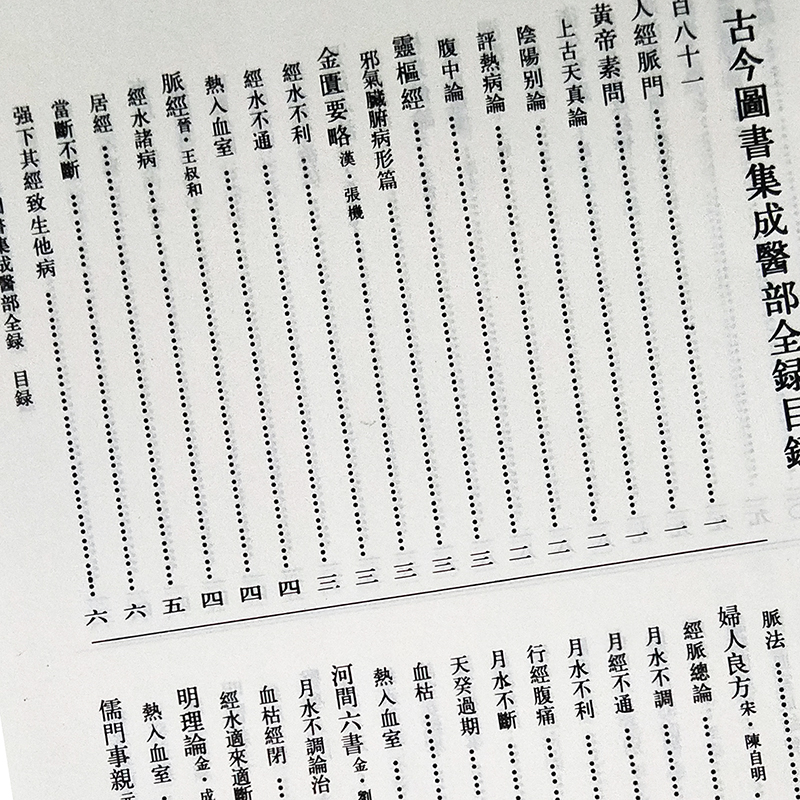 古今圖書集成醫部全録目録
百八十一……一
人經脈門……一
黄帝素問……一
上古天真論……二
陰陽别論……二
評熱病論……二
腹中論……三
靈樞經……三
邪氣臟腑病形篇……三
金匱要略 漢·張機……三
經水不利……四
經水不通……四
熱入血室……四
脈經 晉·王叔和……五
經水諸病……六
居經……六
當斷不斷
强下其經致生他病
脈法……
婦人良方 宋·陳自明
經脈總論……
月水不調……
月經不通……
月水不利……
行經腹痛……
月水不斷……
天癸過期……
血枯……
熱入血室……
河間六書 金·劉
月水不調論治
血枯經閉……
經水適來適斷
明理論 金·成
熱入血室……
儒門事親
集成醫部全録 目録